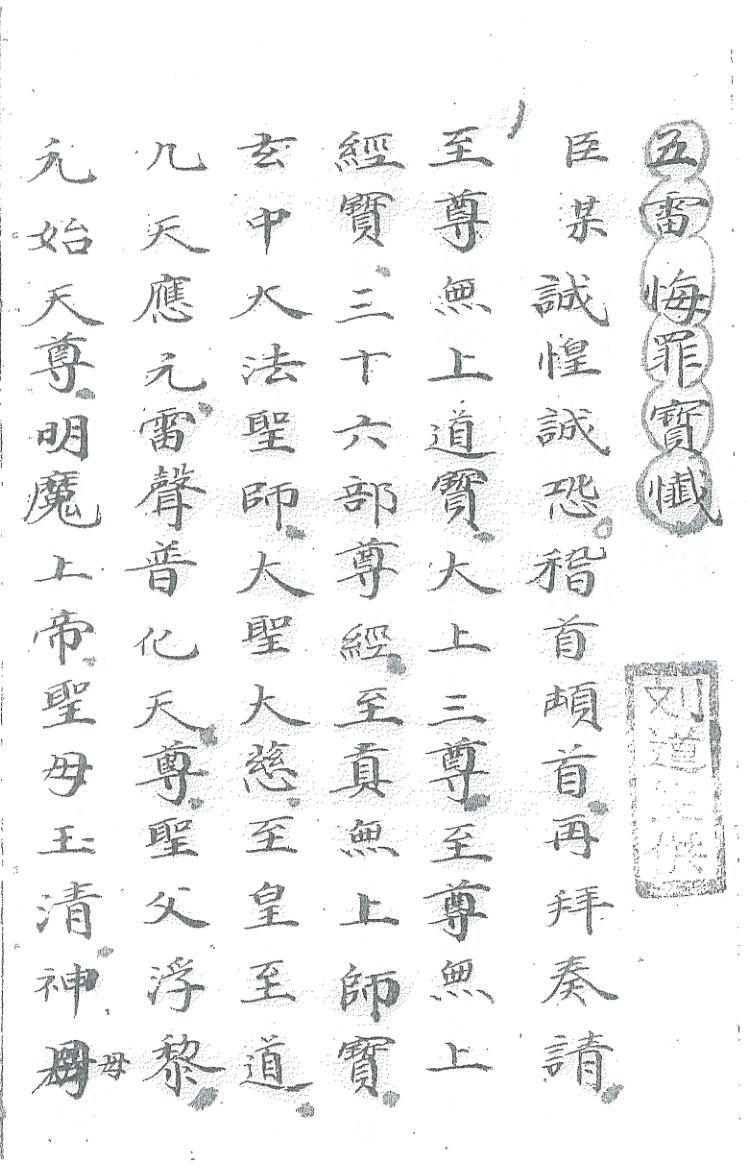 五雷悔罪寳懺
刘道生供
臣某誠惶誠恐稽首頓首再拜奏請
至尊無上道寳大上三尊至尊無上
經寳三十六部尊經至真無上師寳
玄中大法聖師大聖大慈至皇至道
九天應元雷聲普化天尊聖父浮黎
元始天尊明魔上帝聖母玉清神母